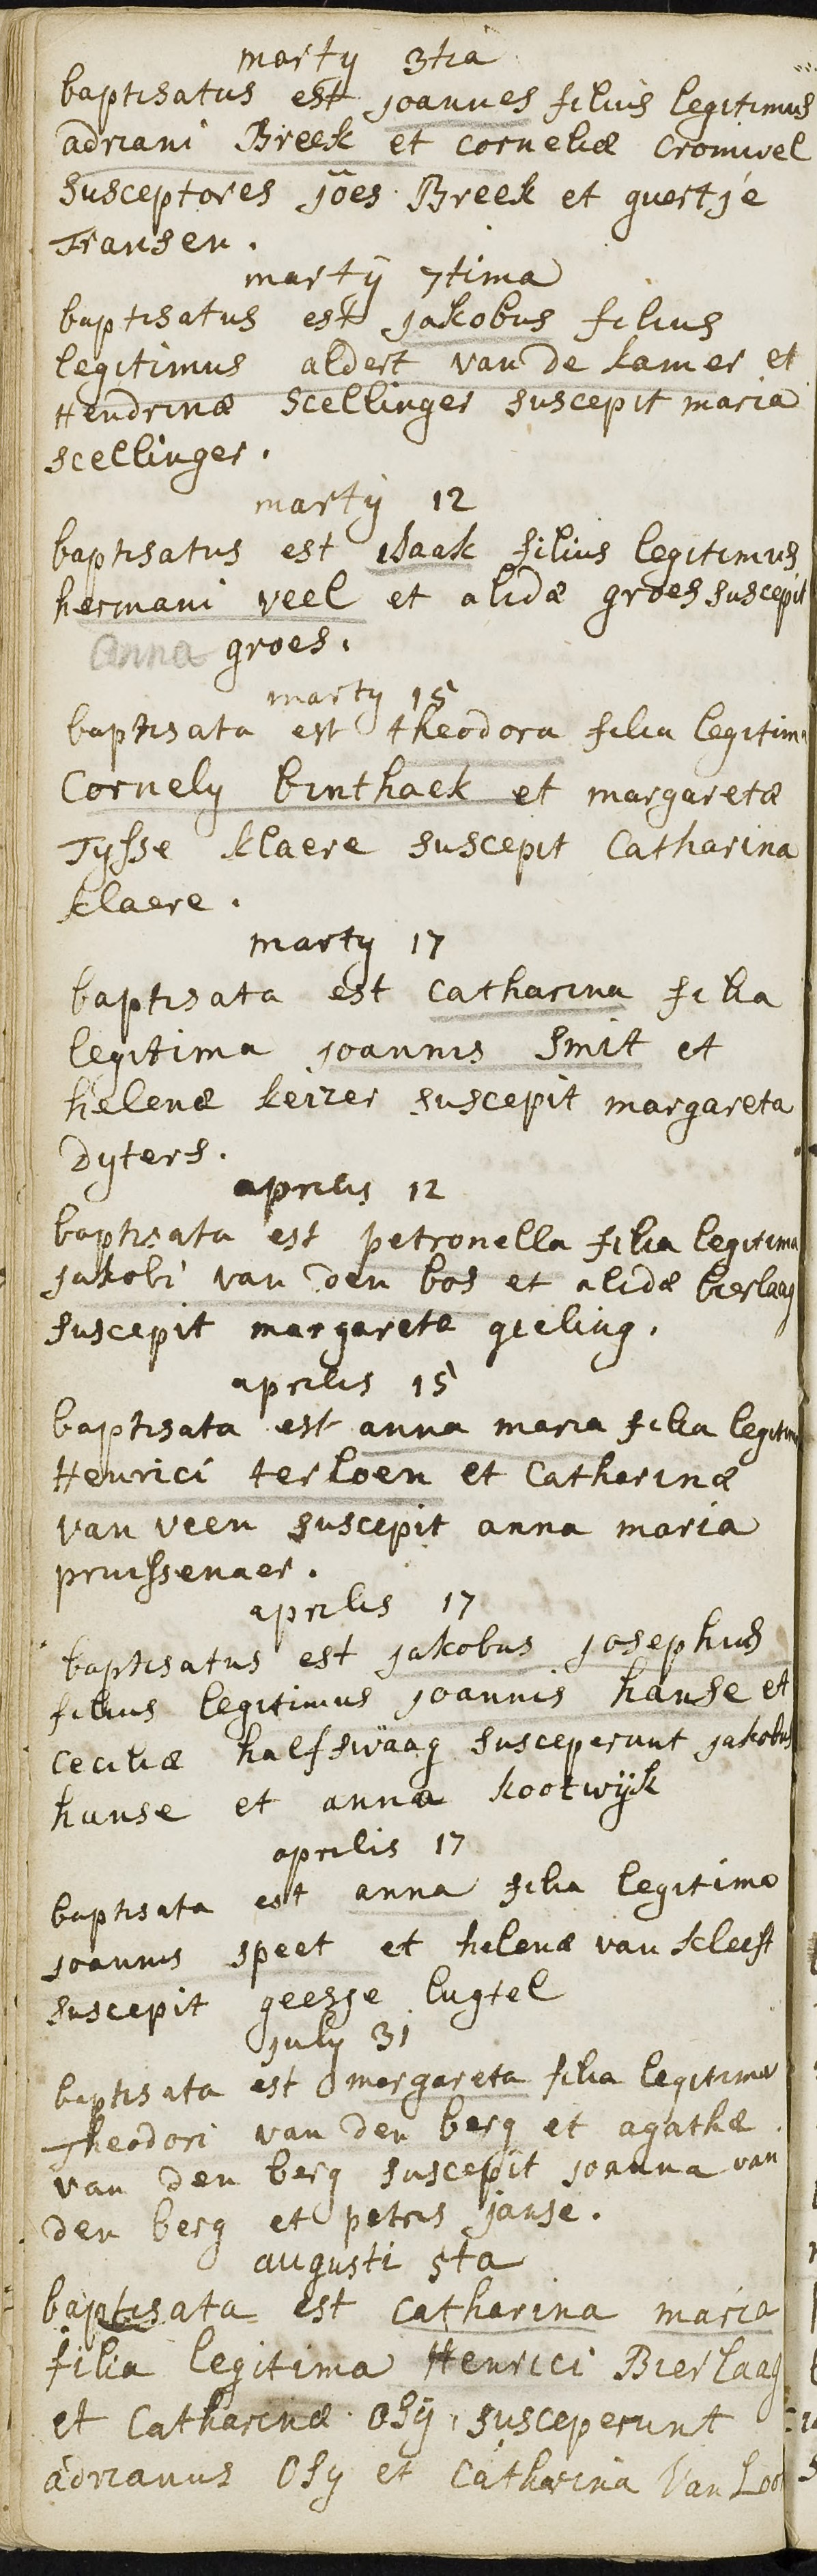 marty 3tia
baptisatus est joannes filius legitimus
adriani Breek et corneliæ Cromwel
susceptores jöes Breek et guertje
Fransen.
martÿ 7tima
baptisatus est jakobus filius
legitimus aldert van de kamer et
Hendrinæ scellinger suscepit maria
scellinger.
martÿ 12
baptisatus est isaak filius legitimus
hermani veel et alidæ groes suscepit
Anna groes.
marty 15
baptisata est theodora filia legitima
Cornely binthaek et margaretæ
Tysse klaere suscepit Catharina
klaere.
marty 17
baptisata est catharina filia
legitima joannis Smit et
helenæ keizer suscepit margareta
dyters.
aprilis 12
baptisata est petronella filia legitima
jakobi van den bos et alidæ bierlaag
suscepit margareta gieling.
aprilis 15
baptisata est anna maria filia legitima
Henrici terloen et Catharinæ
van veen suscepit anna maria
pruissenaer.
aprilis 17
baptisatus est jakobus josephus
filius legitimus joannis hanse et
ceciliæ halfswäag susceperunt jakobus
hanse et anna kootwijk
aprilis 17
baptisata est anna filia legitima
joannis speet et helenæ van kleeft
suscepit geesje lugtel
july 31
baptisata est margareta filia legitima
Theodori van den berg et agathæ
van den berg suscepit joanna van
den berg et petrus janse.
augusti 5ta
baptisata est catharina maria
filia legitima Henrici Bierlaag
et Catharinæ Osÿ, susceperunt
adrianus Osy et Catharina Van Loo